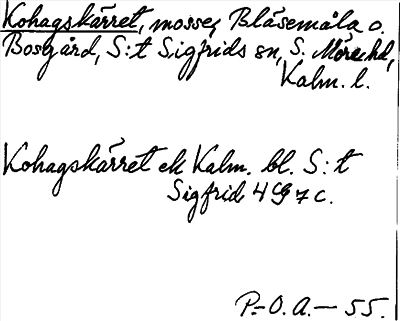 Kohagskärret, mosse, Bläsemåla o.
Bosgård, S:t Sigfrids sn, S. Möre hd,
Kalm. l.
Kohagskärret ek Kalm. bl. S:t
Sigfrid 4G7c.
P.-O.A.— 55.